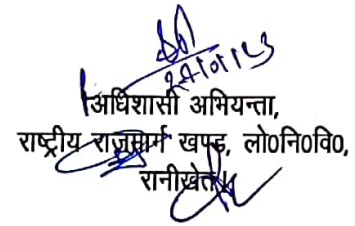 अधिशासी अभियन्ता,
राष्ट्रीय राजमार्ग खण्ड, लो०नि०वि०,
रानीखेत।